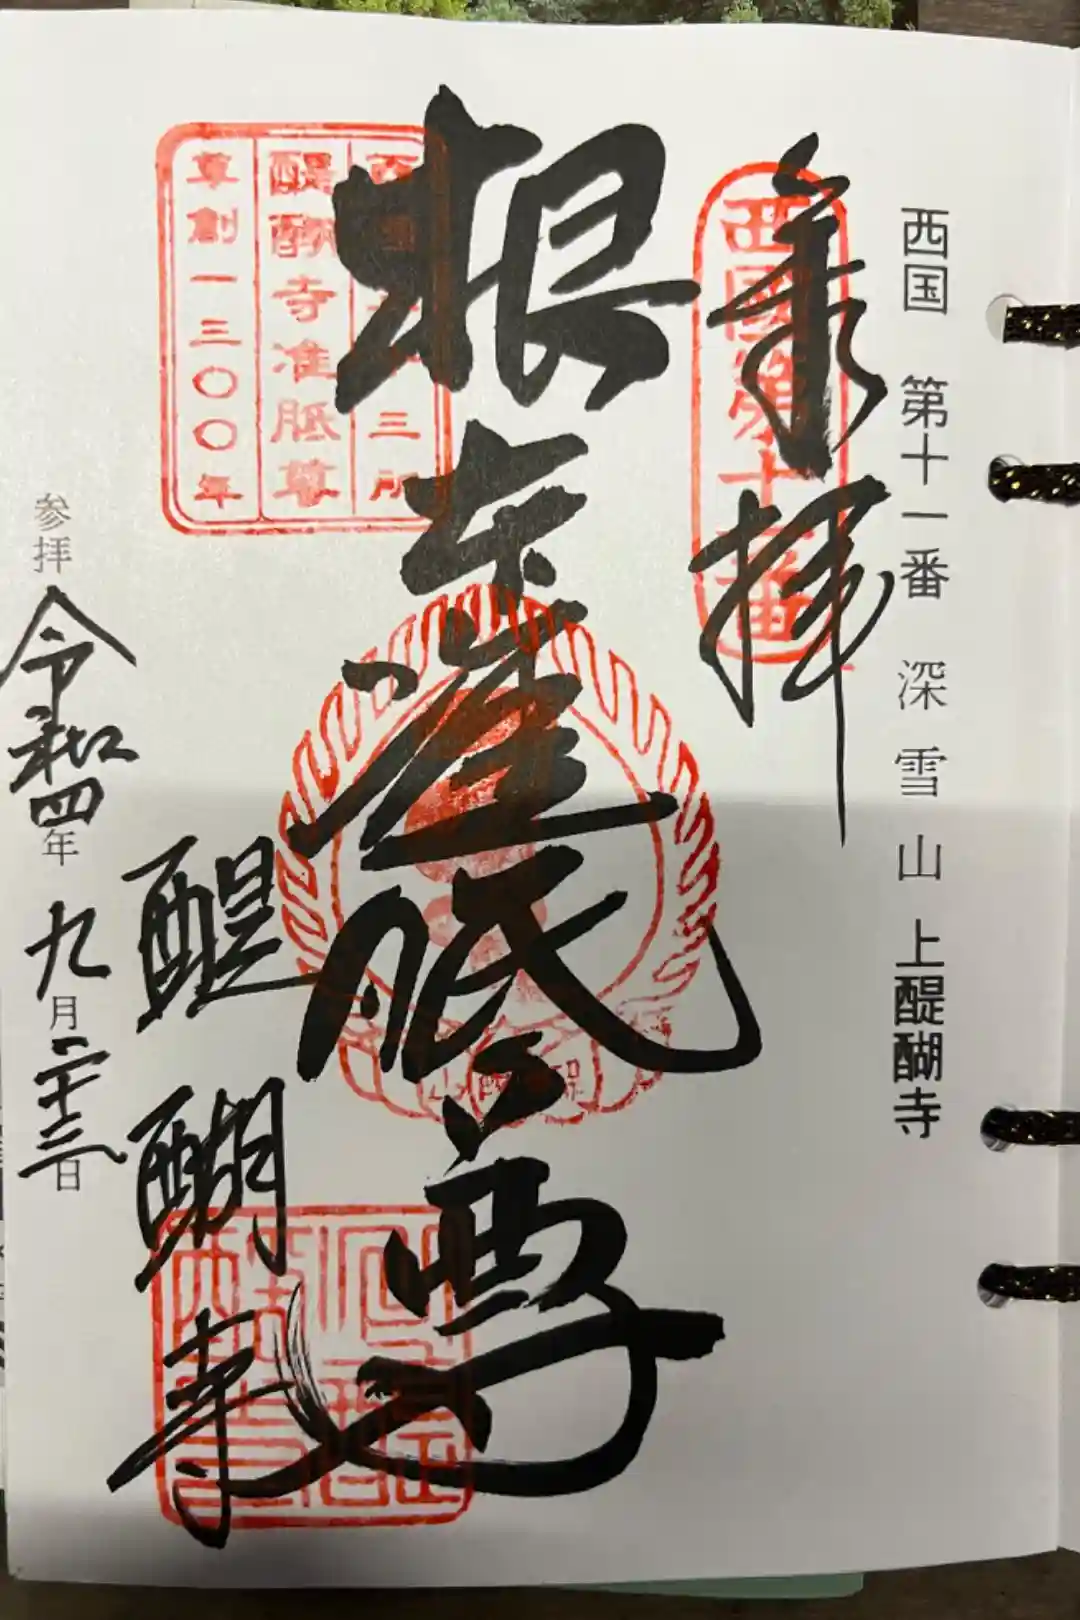 西国 第十一番 深雪山 上醍醐寺
奉拝
西國第十一番
根本准胝尊
西国三十三所
醍醐寺准胝尊
草創一三〇〇年
醍醐寺
参拝 令和四年 九月二十三日